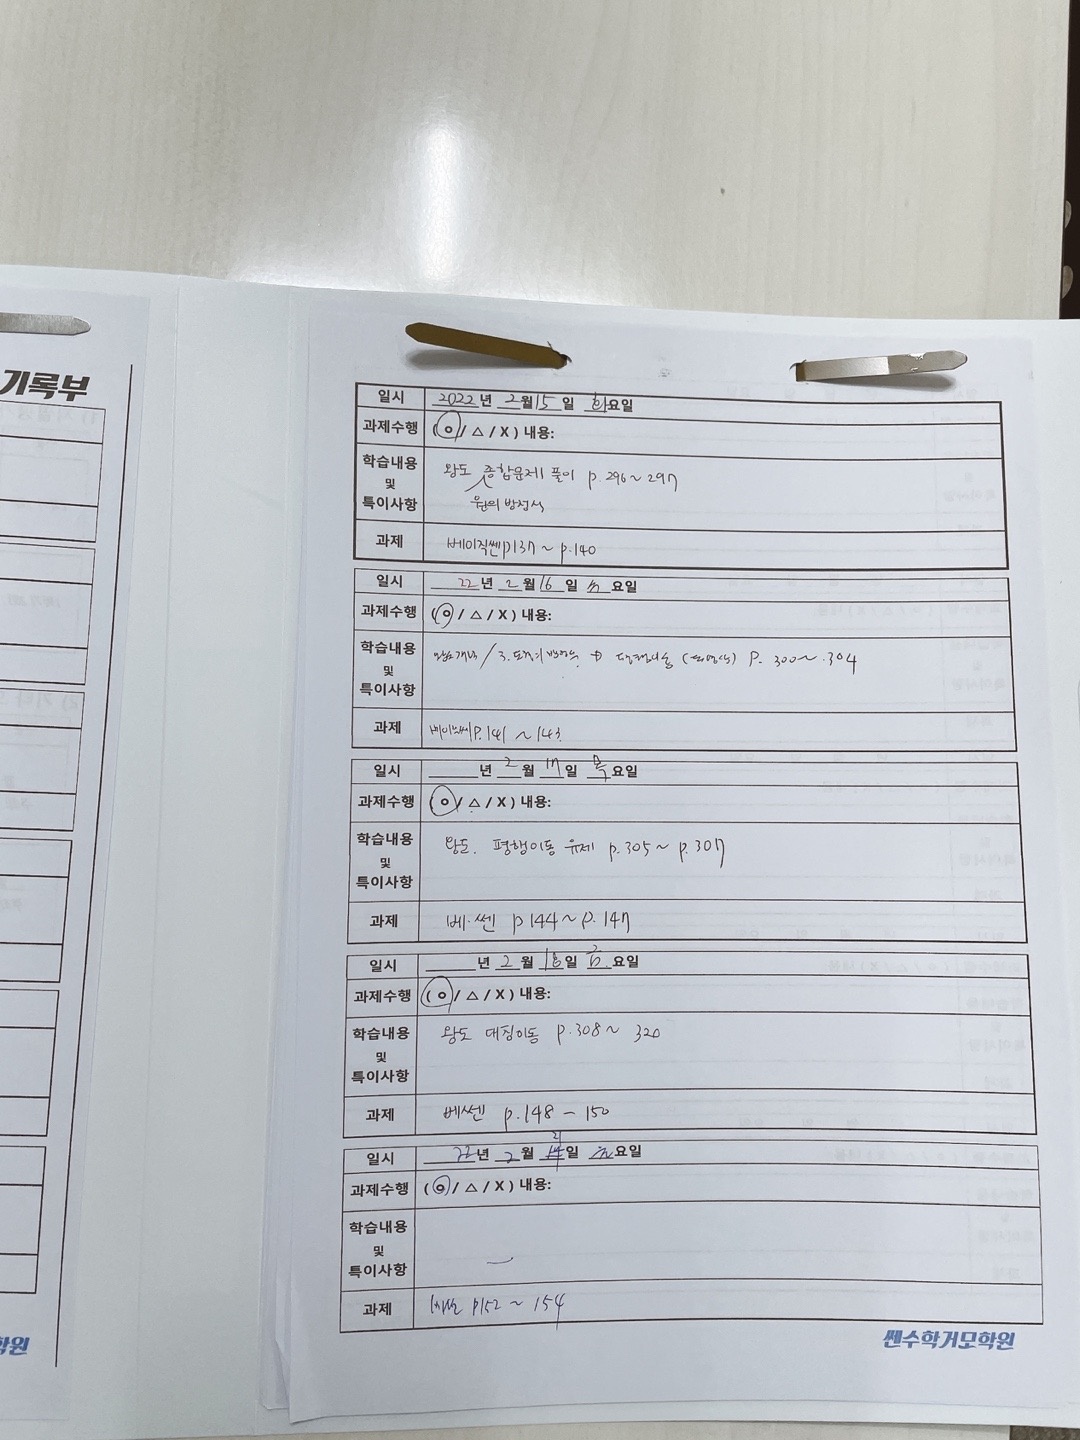 기록부
일시 2022년 2월 15일 화요일
과제수행 (O/△/X) 내용:
학습내용 및 특이사항 왕도 종합문제 풀이 p.296~297
원의 방정식
과제 베이직쎈 p137~p.140
일시 22년 2월 16일 수요일
과제수행 (O/△/X) 내용:
학습내용 및 특이사항 / 3. 도형의 방정식 P. 300~304
과제 P.141~143
일시 년 2월 17일 목요일
과제수행 (O/△/X) 내용:
학습내용 및 특이사항 왕도. 평행이동 유제 p.305~p.307
과제 베.쎈 p144~p.147
일시 년 2월 18일 금요일
과제수행 (O/△/X) 내용:
학습내용 및 특이사항 왕도 대칭이동 p.308~320
과제 베쎈 p.148-150
일시 22년 2월 21일 요일
과제수행 (O/△/X) 내용:
학습내용 및 특이사항
과제 p152~154
학원
쎈수학거모학원